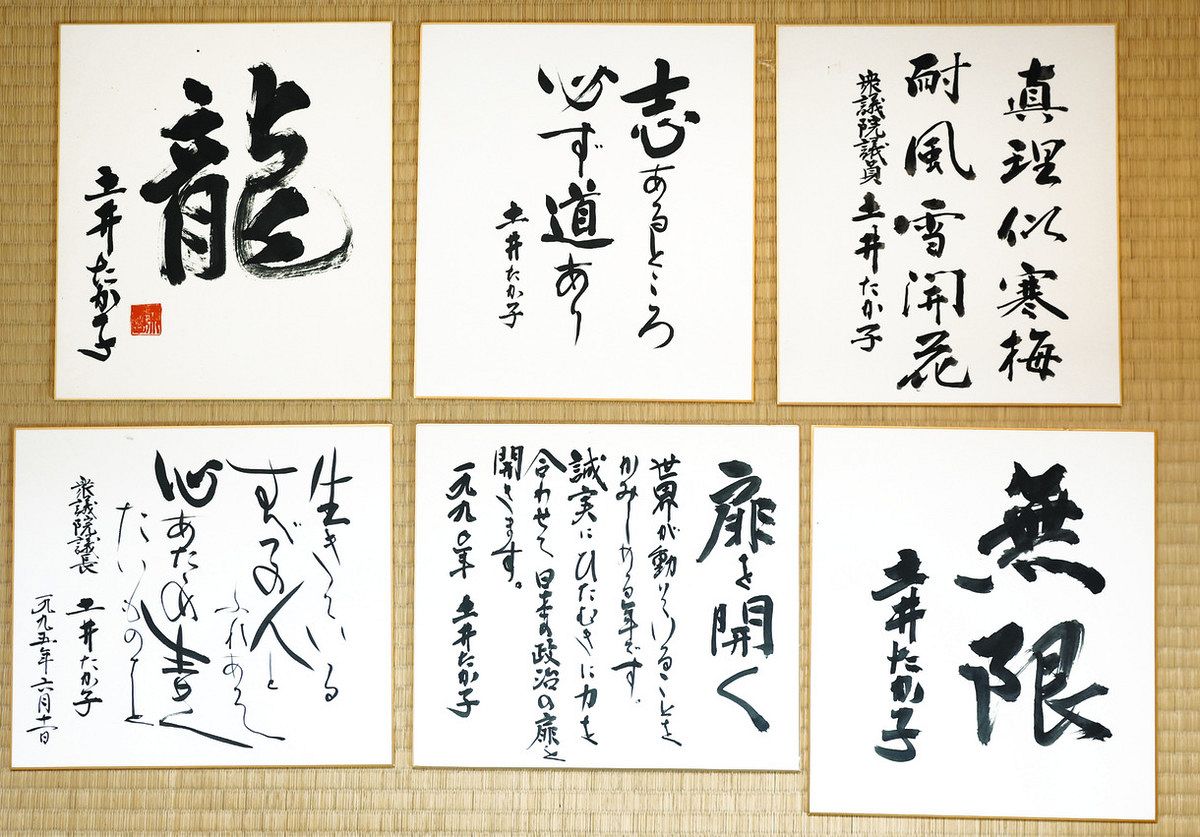 龍
土井たか子
志あるところ
必ず道あり
土井たか子
真理似寒梅
耐風雪開花
衆議院議員 土井たか子
生きている
すべての人と
心あた
たいものこと
衆議院議長 土井たか子
一九九五年六月十一日
扉を開く
世界が動いていることを
かみしめる年です。
誠実にひたむきに力を
合わせて日本の政治の扉を
開きます。
一九九〇年 土井たか子
無限
土井たか子